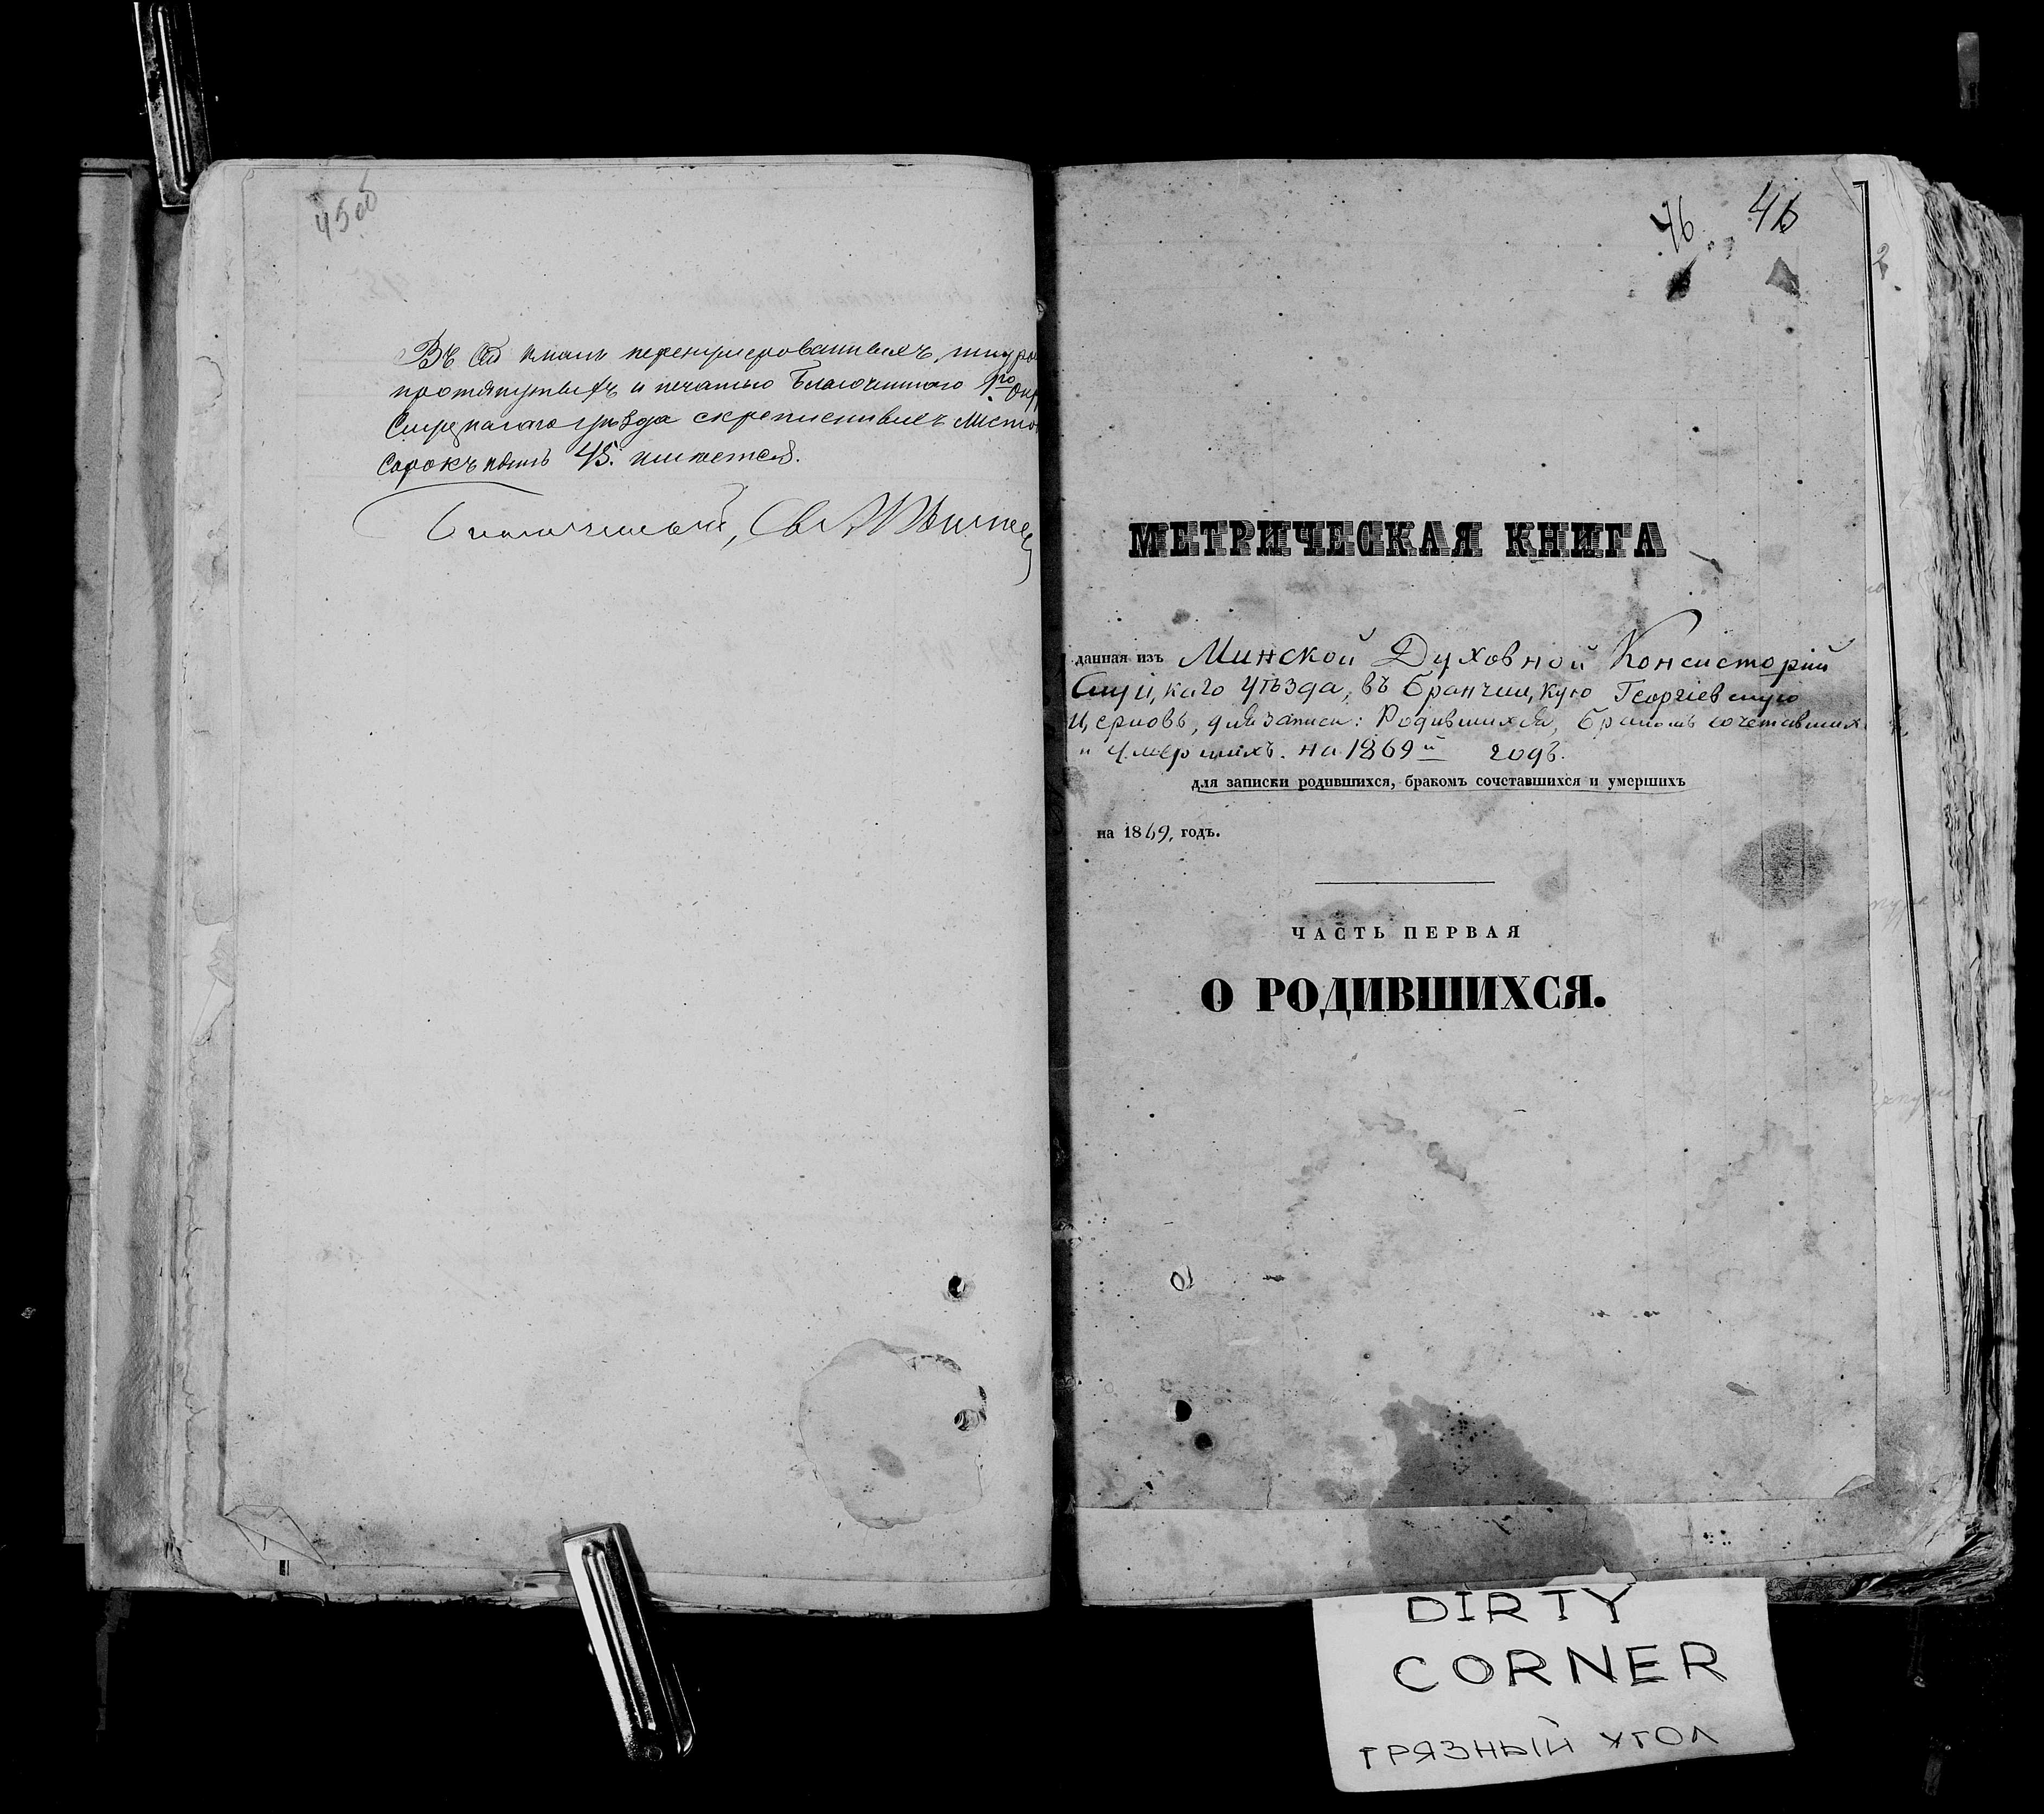 45об
Въ сей книгѣ перенумерованныхъ, шнуро
протянутыхъ и печатью Благочиннаго 1го Окр
Слуцкаго уѣзда скрепленныхъ листо
Сорокъ пять 45. имѣется.
Благочинный, Св
46 46
МЕТРИЧЕСКАЯ КНИГА
данная изъ Минской Духовной Консисторіи
Слуцкаго уѣзда, въ Бранчицкую Георгіевскую
Церковь, для записи: Родившихся, Бракомъ сочетавших
и Умершихъ. на 1869й годъ.
для записки родившихся, бракомъ сочетавшихся и умершихъ
на 1869, годъ.
ЧАСТЬ ПЕРВАЯ
О РОДИВШИХСЯ.
DIRTY
CORNER
ГРЯЗНЫЙ УГОЛ